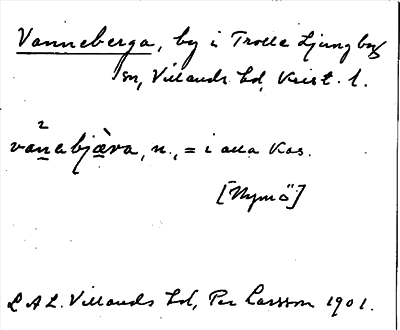 Vanneberga, by i Trolle Ljungby
sn, Villands hd, Krist. l.
2
vanabjæ̀ra, n., = i alla kas.
[Nymö]
L A L. Villands hd, Per Larsson 1901.